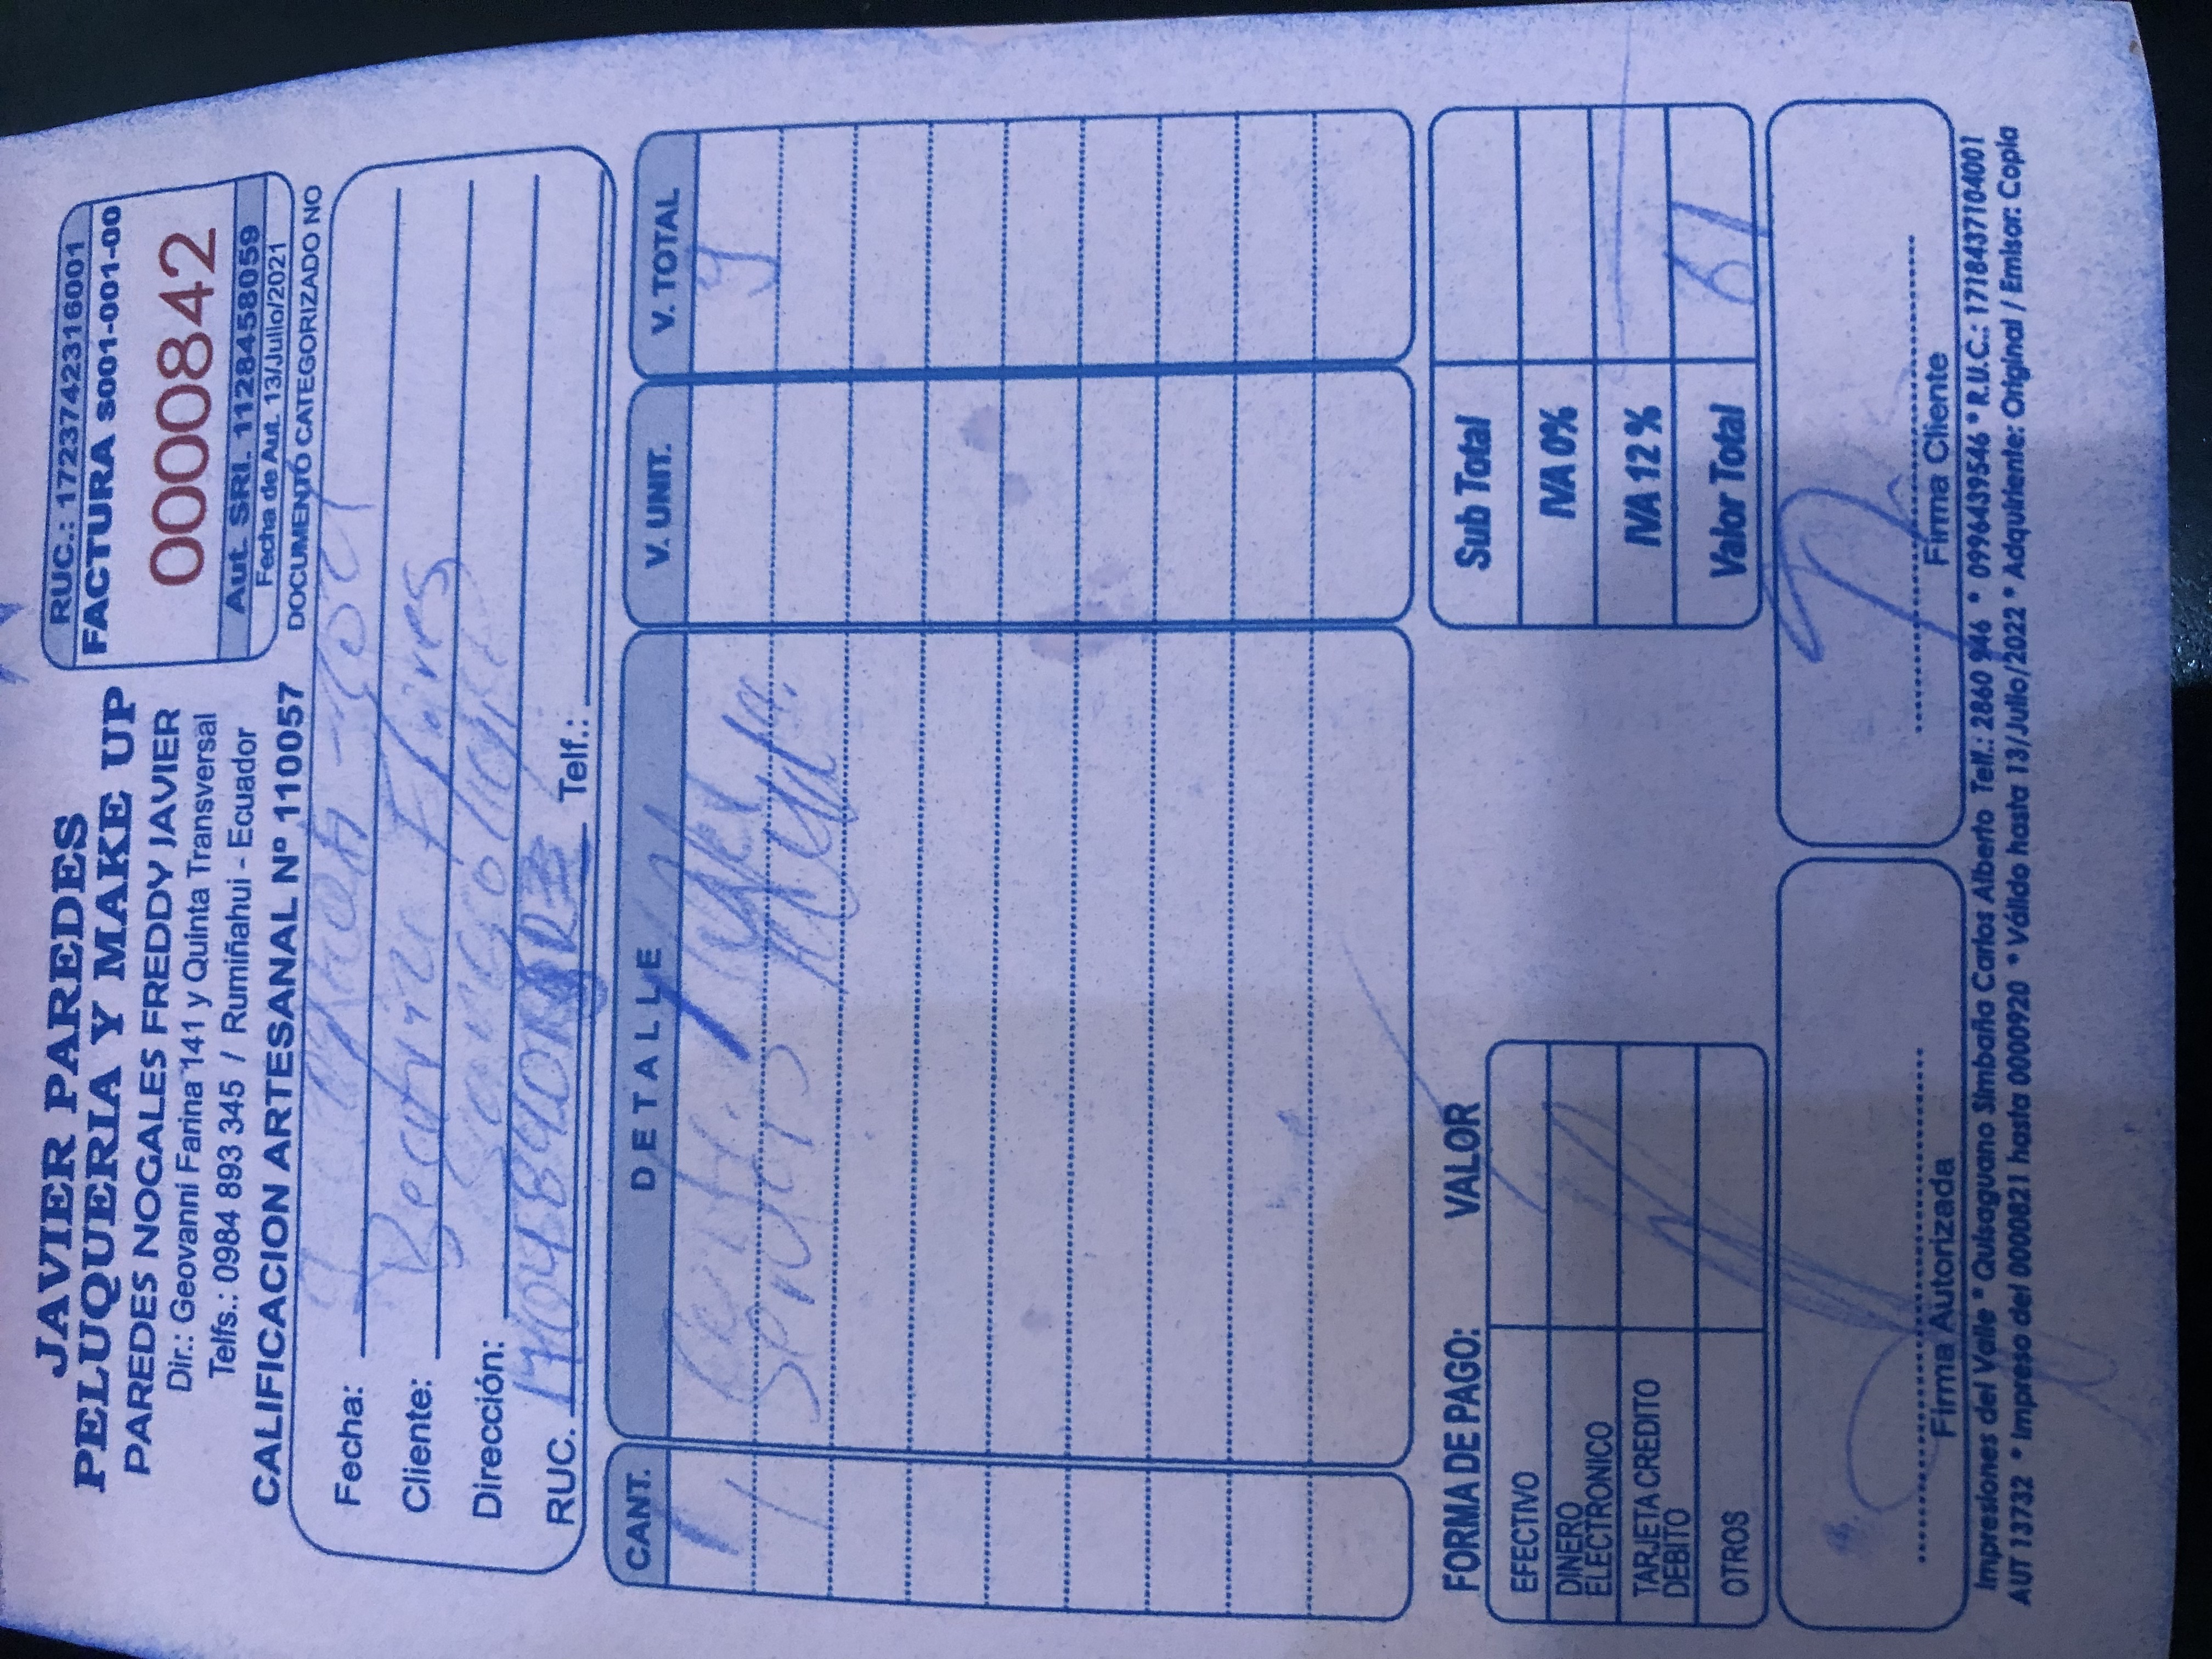 JAVIER PAREDES
PELUQUERIA Y MAKE UP
PAREDES NOGALES FREDDY JAVIER
Dir.: Geovanni Farina 141 y Quinta Transversal
Telfs.: 0984 893 345 / Rumiñahui - Ecuador
CALIFICACION ARTESANAL Nº 110057
RUC.: 1723742316001
FACTURA S001-001-00
0000842
Aut. SRI. 1128458059
Fecha de Aut. 13/Julio/2021
DOCUMENTO CATEGORIZADO NO
Fecha:
Cliente: Beatriz Flores
Dirección: Sangolqui
RUC. Telf.:
CANT. DETALLE V. UNIT. V. TOTAL
1 9
1
FORMA DE PAGO: VALOR
EFECTIVO
DINERO
ELECTRONICO
TARJETA CREDITO
DEBITO
OTROS
Sub Total
IVA 0%
IVA 12 %
Valor Total 61
Firma Autorizada
Firma Cliente
Impresiones del Valle * Quisaguano Simbaña Carlos Alberto Telf.: 2860 946 * 0996439546 * R.U.C.: 1718437104001
AUT 13732 * Impreso del 0000821 hasta 0000920 * Válido hasta 13/Julio/2022 * Adquiriente: Original / Emisor: Copia